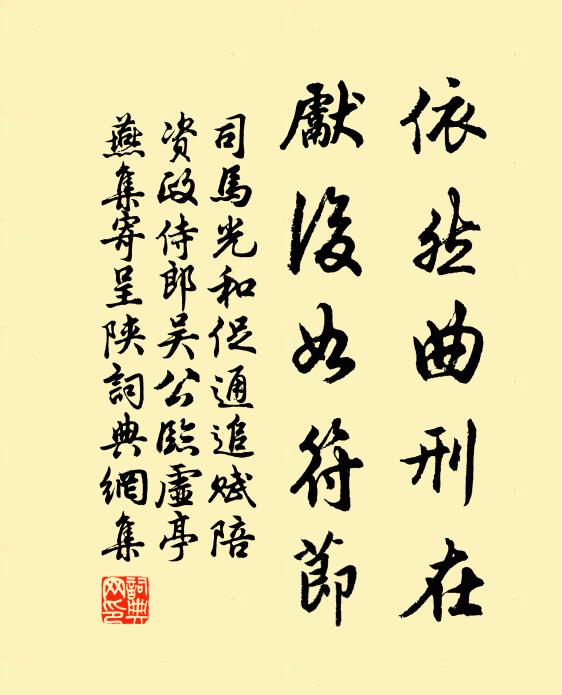 依然曲刑在
獻後如符節
司馬光和促通追賦陪
资政侍郎吴公臨虛亭
燕集寄呈陝詞典網集
詞典
网印